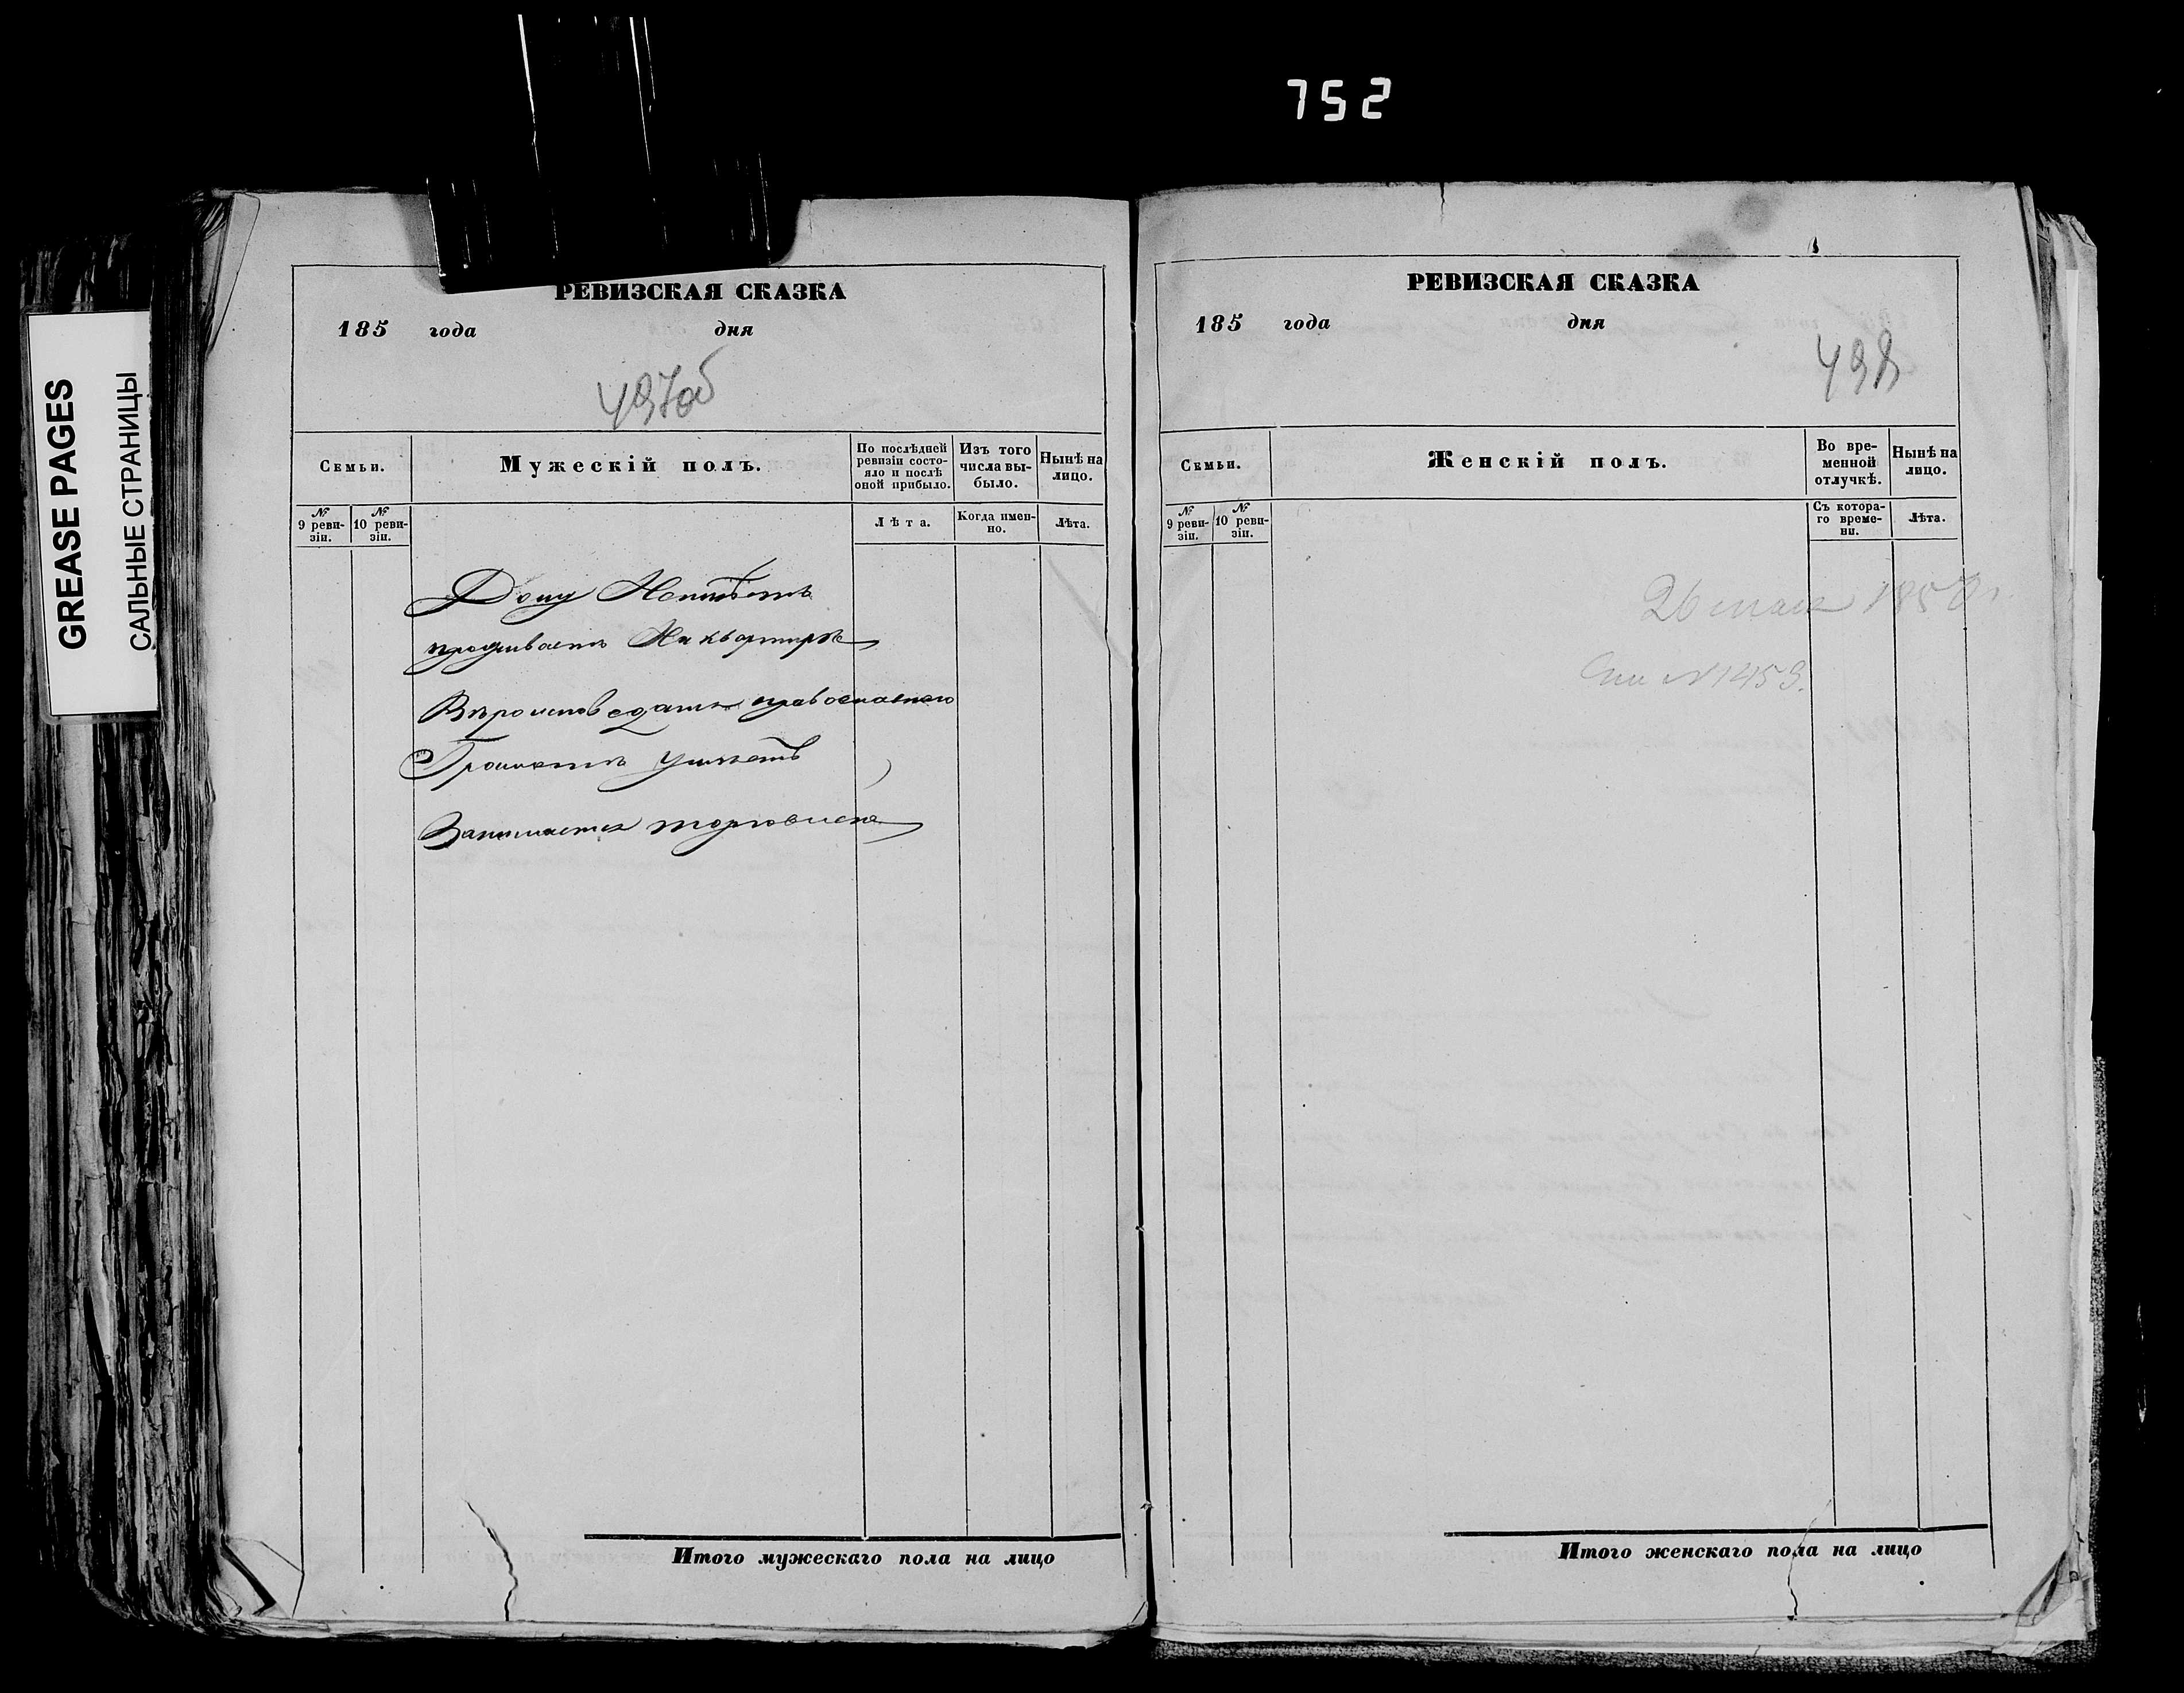 752
GREASE PAGES
САЛЬНЫЕ СТРАНИЦЫ
РЕВИЗСКАЯ СКАЗКА
185 года дня
497об
Семьи.
Мужескій полъ.
По послѣдней ревизіи состояло и послѣ оной прибыло.
Изъ того числа выбыло.
Нынѣ на лицо.
№ 9 ревизіи.
№ 10 ревизіи.
Лѣта.
Когда именно.
Лѣта.
Дому Неимѣетъ
проживаетъ На квартирѣ
Вѣроисповѣданія православнаго
Грамотѣ умѣетъ
Занимается торговлею
Итого мужескаго пола на лицо
РЕВИЗСКАЯ СКАЗКА
185 года дня
498
Семьи.
Женскій полъ.
Во временной отлучкѣ.
Нынѣ на лицо.
№ 9 ревизіи.
№ 10 ревизіи.
Съ котораго времени.
Лѣта.
26 мая 1858 г.
№ 1459.
Итого женскаго пола на лицо